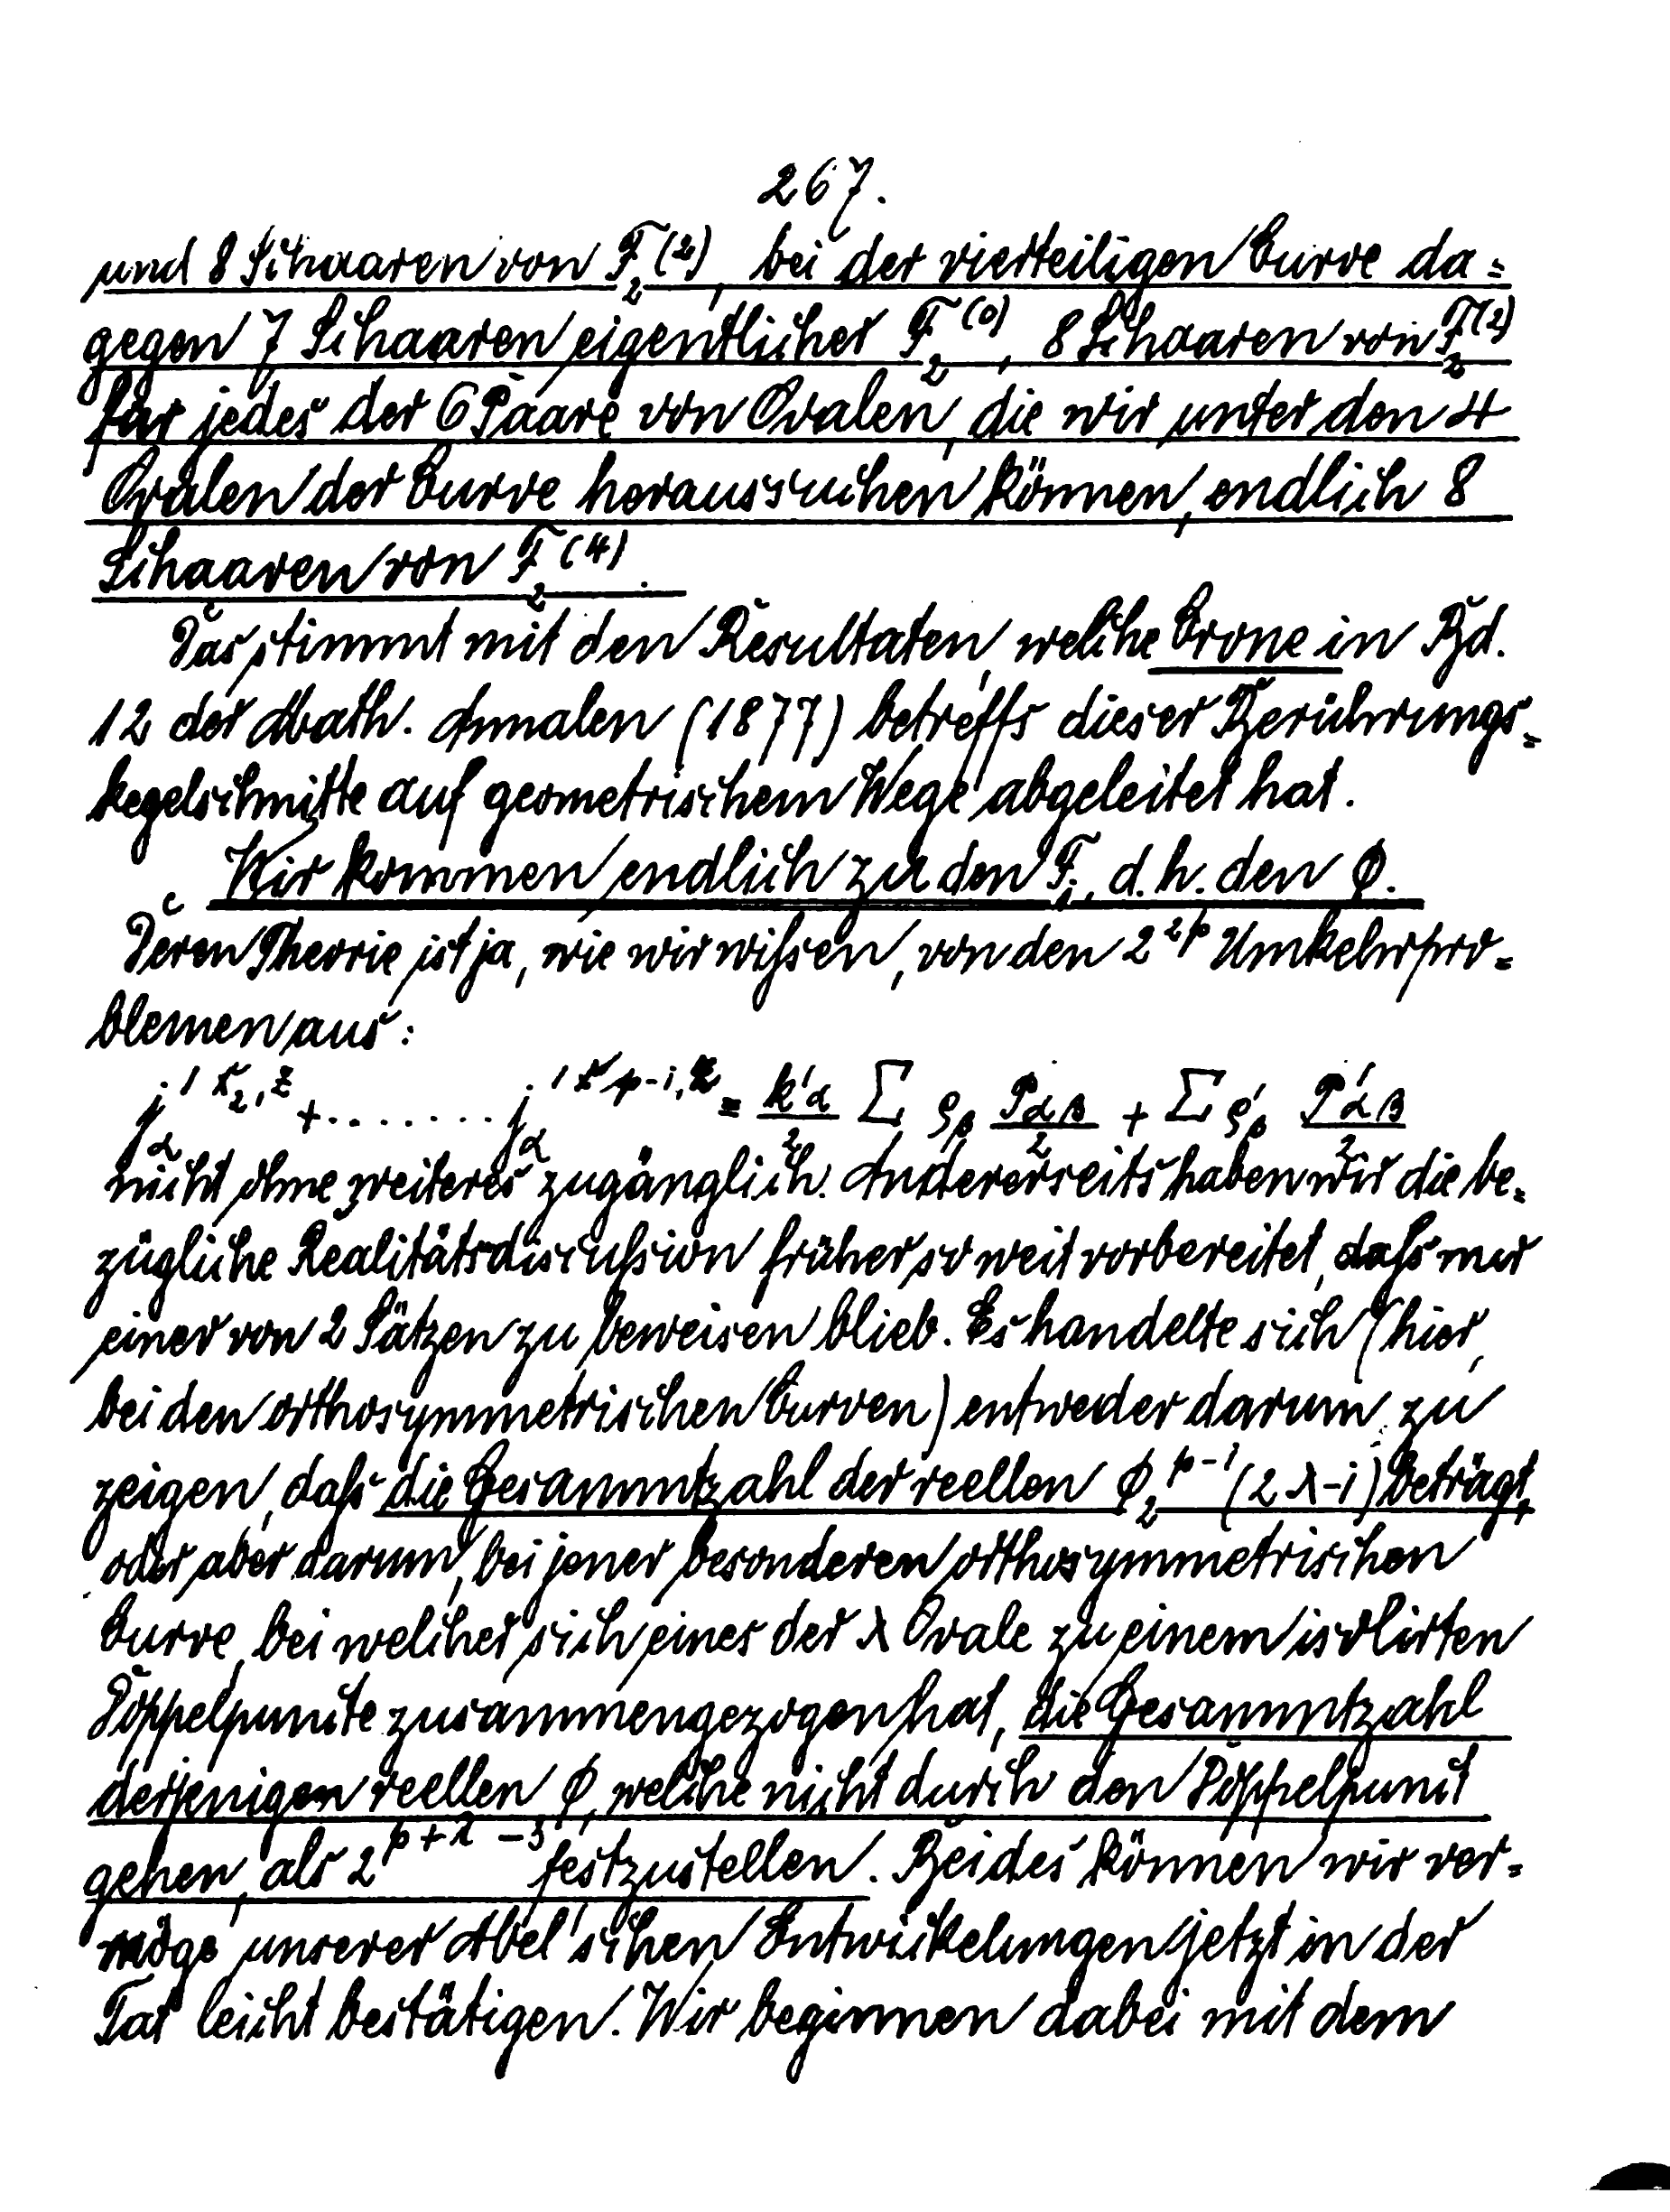 267.
und 8 Schaaren von F₂⁽²⁾, bei der vierteiligen Curve da=
gegen 7 Schaaren eigentlicher F₂⁽⁰⁾, 8 Schaaren von F₂⁽²⁾
für jedes der 6 Paare von Ovalen, die wir unter den 4
Ovalen der Curve heraussuchen können, endlich 8
Schaaren von F₂⁽⁴⁾.
Das stimmt mit den Resultaten, welche Crone in Bd.
12 der Math. Annalen (1877) betreffs dieser Berührungs=
kegelschnitte auf geometrischem Wege abgeleitet hat.
Wir kommen endlich zu den F₁, d.h. den φ.
Deren Theorie ist ja, wie wir wißsen, von den 2^{2p} Umkehrpro=
blemen aus:
j_α^{1 x₂, z} + ........ j_α^{1 x p-1, z} = k'α/2 Σ ϱ_β Pαβ/2 + Σ ϱ'_β P'αβ/2
nicht ohne weiteres zugänglich. Andererseits haben wir die be=
zügliche Realitätsdiscußsion früher so weit vorbereitet, daß nur
einer von 2 Sätzen zu beweisen blieb. Es handelte sich (hier,
bei den orthosymmetrischen Curven) entweder darum, zu
zeigen, daß die Gesammtzahl der reellen φ 2^{p-1} (2λ-1) beträgt,
oder aber darum, bei jener besonderen orthosymmetrischen
Curve, bei welcher sich eines der λ Ovale zu einem isolirten
Doppelpuncte zusammengezogen hat, die Gesammtzahl
derjenigen reellen φ, welche nicht durch den Doppelpunct
gehen, als 2^{p+λ-3} festzustellen. Beides können wir ver=
möge unserer Abel'schen Entwickelungen jetzt in der
Tat leicht bestätigen. Wir beginnen dabei mit dem